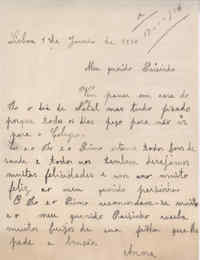 Lisboa 1 de Janeiro de 1930
Meu querido Paisinho
Vim passar em casa do
o dia de Natal mas tenho pisado
porque todos os dias peço para não ir
para o Colegio.
e o Primo estame todos bons de
saude e todos nos tambem desejamos
muitas felicidades e um ano muito
feliz ao meu querido
e o Primo recomendam-se muito
e o meu querido Paisinho receba
muitos beijos de sua filha que lhe
pede a benção
Anna